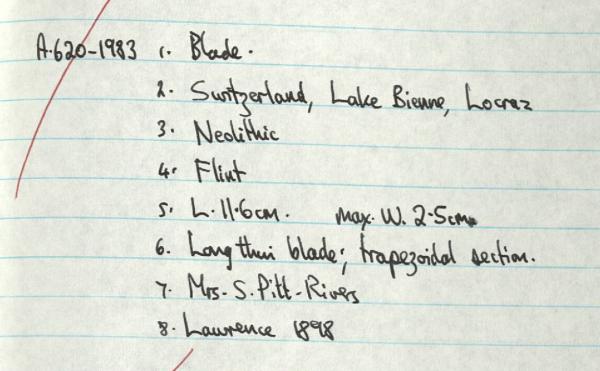 A.620-1983 1. Blade.
2. Switzerland, Lake Bienne, Locraz
3. Neolithic
4. Flint
5. L. 11.6cm. max. W. 2.5cm.
6. Long thin blade; trapezoidal section.
7. Mrs. S. Pitt-Rivers
8. Lawrence 1898